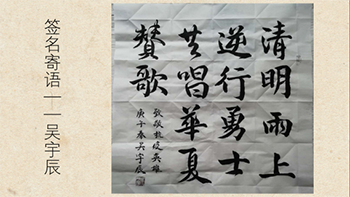 签名寄语——吴宇辰
清明雨上
逆行勇士
共唱華夏
賛歌
致敬抗疫英雄
庚子春吴宇辰